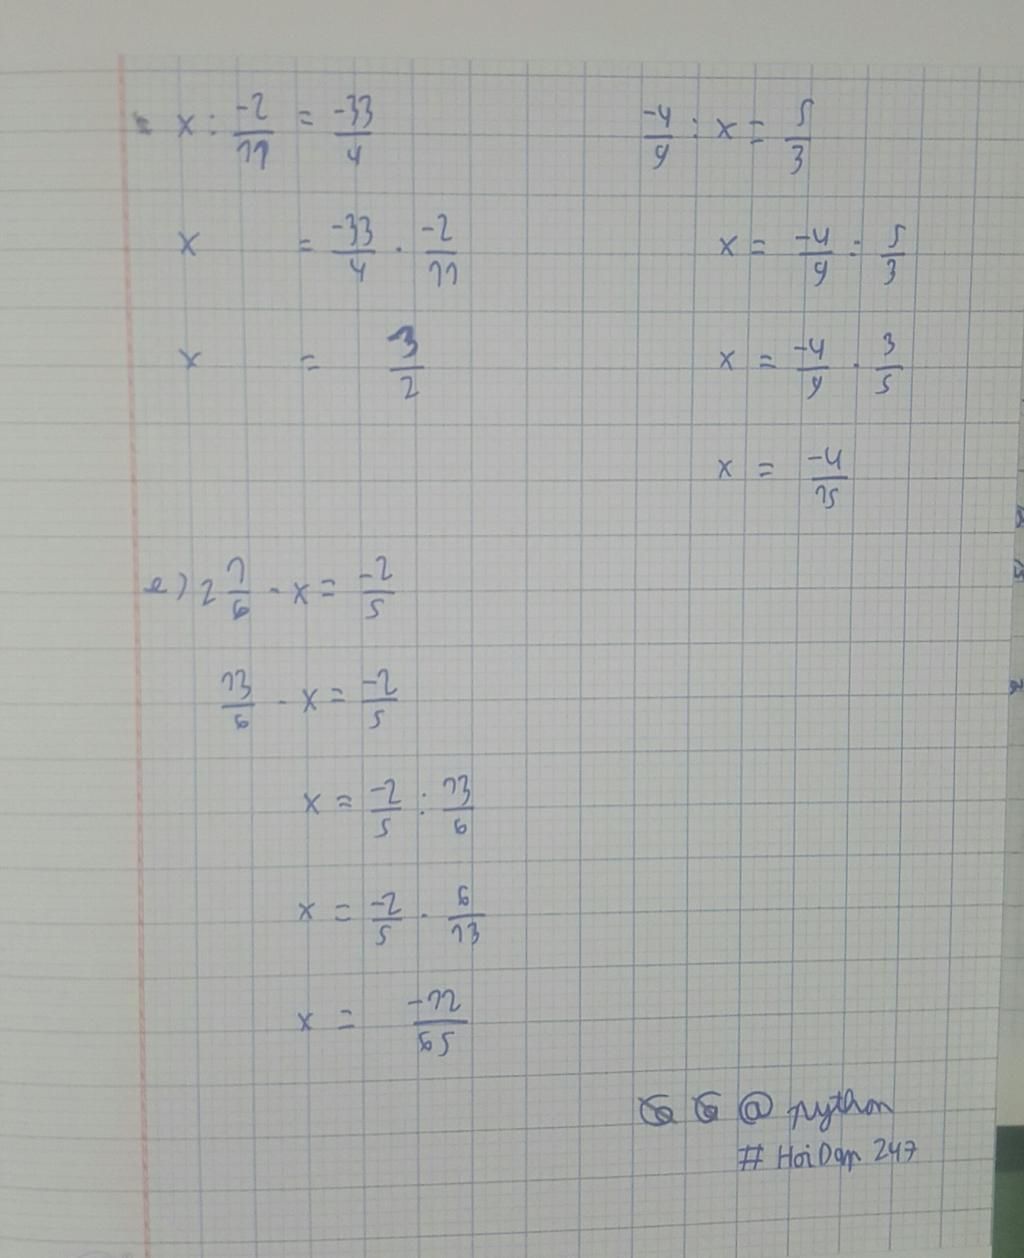 x : -2/11 = -33/4
x = -33/4 . -2/11
x = 3/2
-4/9 : x = 5/3
x = -4/9 : 5/3
x = -4/9 . 3/5
x = -4/15
e) 2 1/6 - x = -2/5
13/6 - x = -2/5
x = -2/5 : 13/6
x = -2/5 . 6/13
x = -12/65
@ python
# HoiDap 247